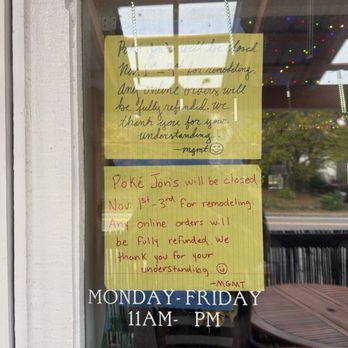 Poké Jon's will be closed
Nov. 1st - 3rd for remodeling.
Any online orders will
be fully refunded. We
thank you for your
understanding.
-mgmt ☺
Poké Jon's will be closed
Nov 1st-3rd for remodeling.
Any online orders will
be fully refunded. We
thank you for your
understanding. ☺
-MGMT
MONDAY-FRIDAY
11AM- PM